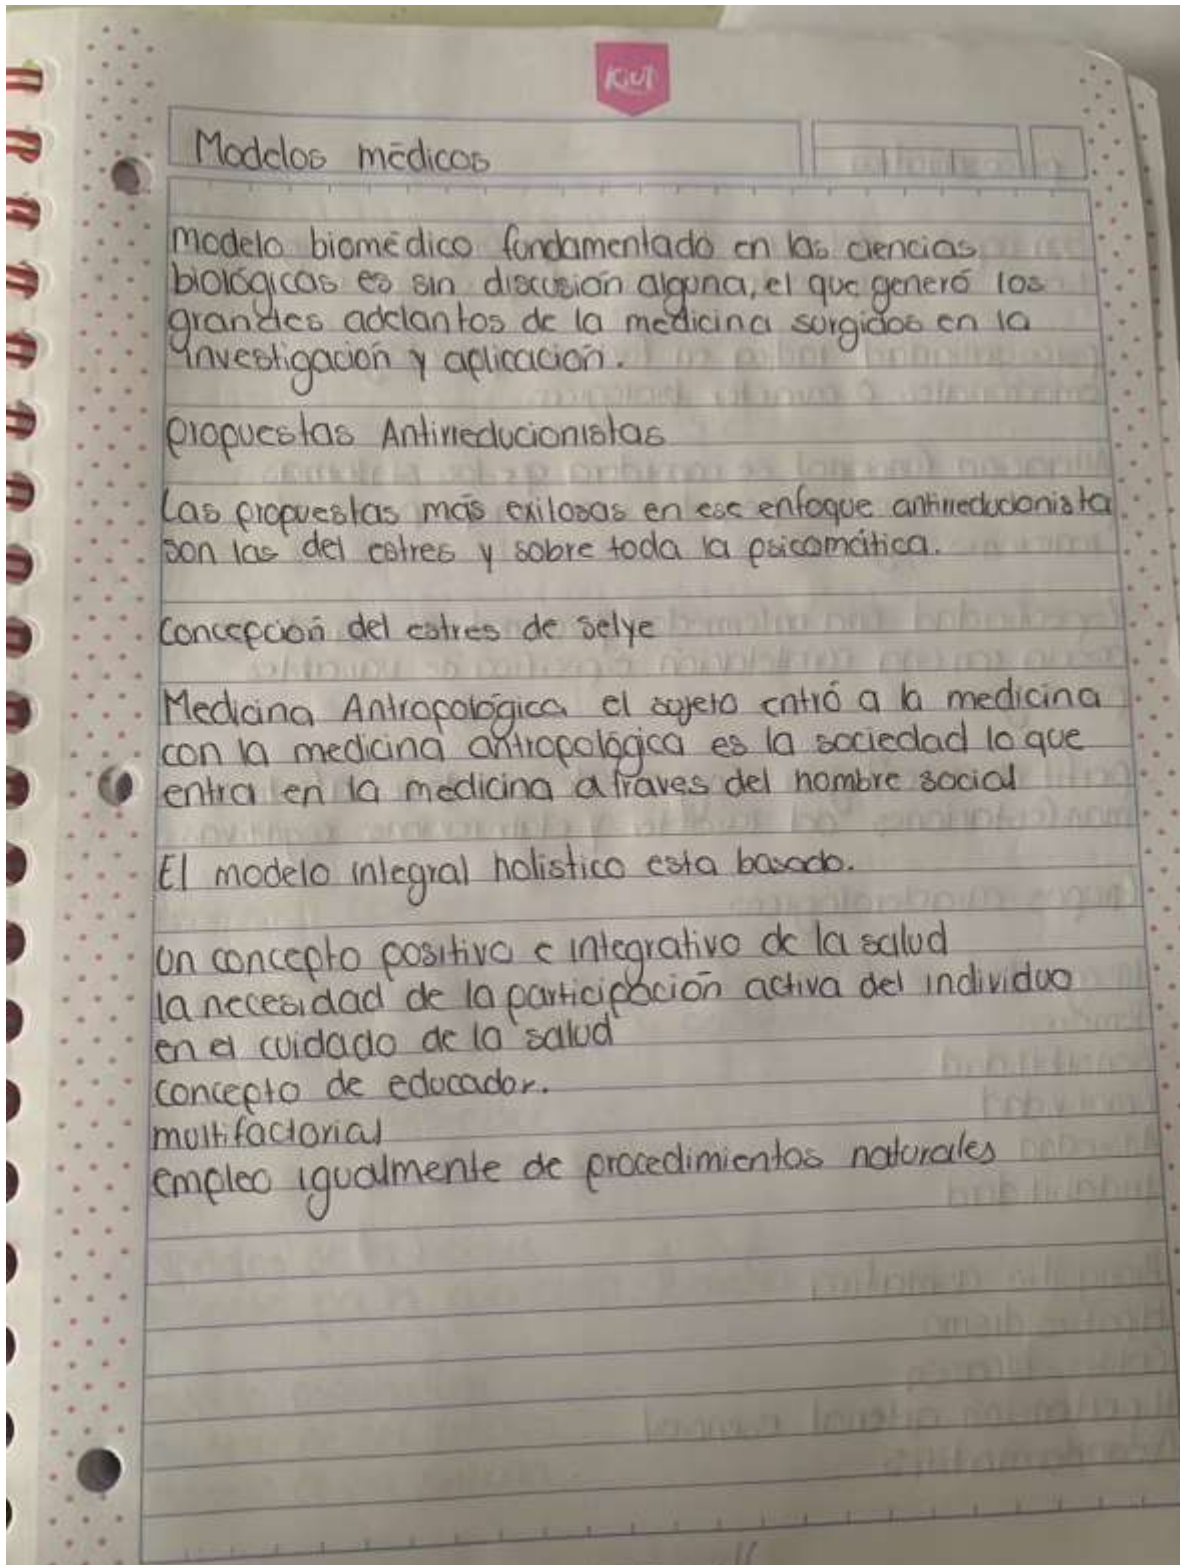 Kiut
Modelos médicos
modelo biomédico fundamentado en las ciencias
biológicas es sin discusión alguna, el que generó los
grandes adelantos de la medicina surgidos en la
investigación y aplicación.
propuestas Antirreducionistas
Las propuestas más exitosas en ese enfoque antirreducionista
son las del estres y sobre toda la psicomática.
Concepción del estres de selye
Medicina Antropológica el sujeto entró a la medicina
con la medicina antropológica es la sociedad lo que
entra en la medicina a traves del hombre social
El modelo integral holistico esta basado.
Un concepto positivo e integrativo de la salud
la necesidad de la participación activa del individuo
en el cuidado de la salud
concepto de educador.
multifactorial
empleo igualmente de procedimientos naturales